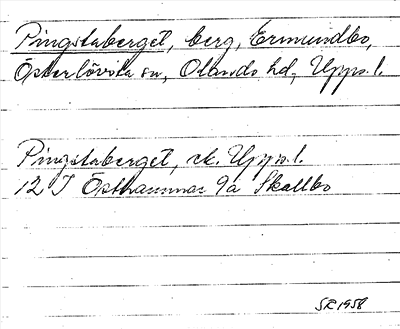 Pingstaberget, berg, Ermundbo,
Österlövsta sn, Olands hd, Upps. l.
Pingstaberget, ek. Upps. l.
12 I Östhammar 9a Skallbo
SR 1958